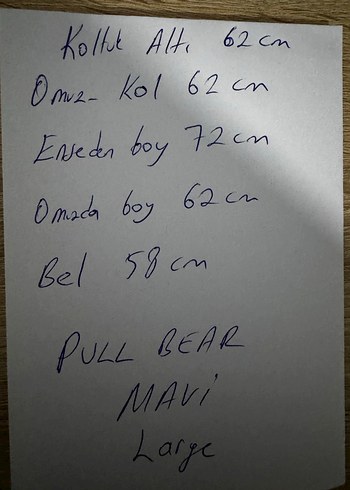 Koltuk Altı 62 cm
Omuz- Kol 62 cm
Enseden boy 72 cm
Omuzda boy 62 cm
Bel 58 cm
PULL BEAR
MAVi
Large